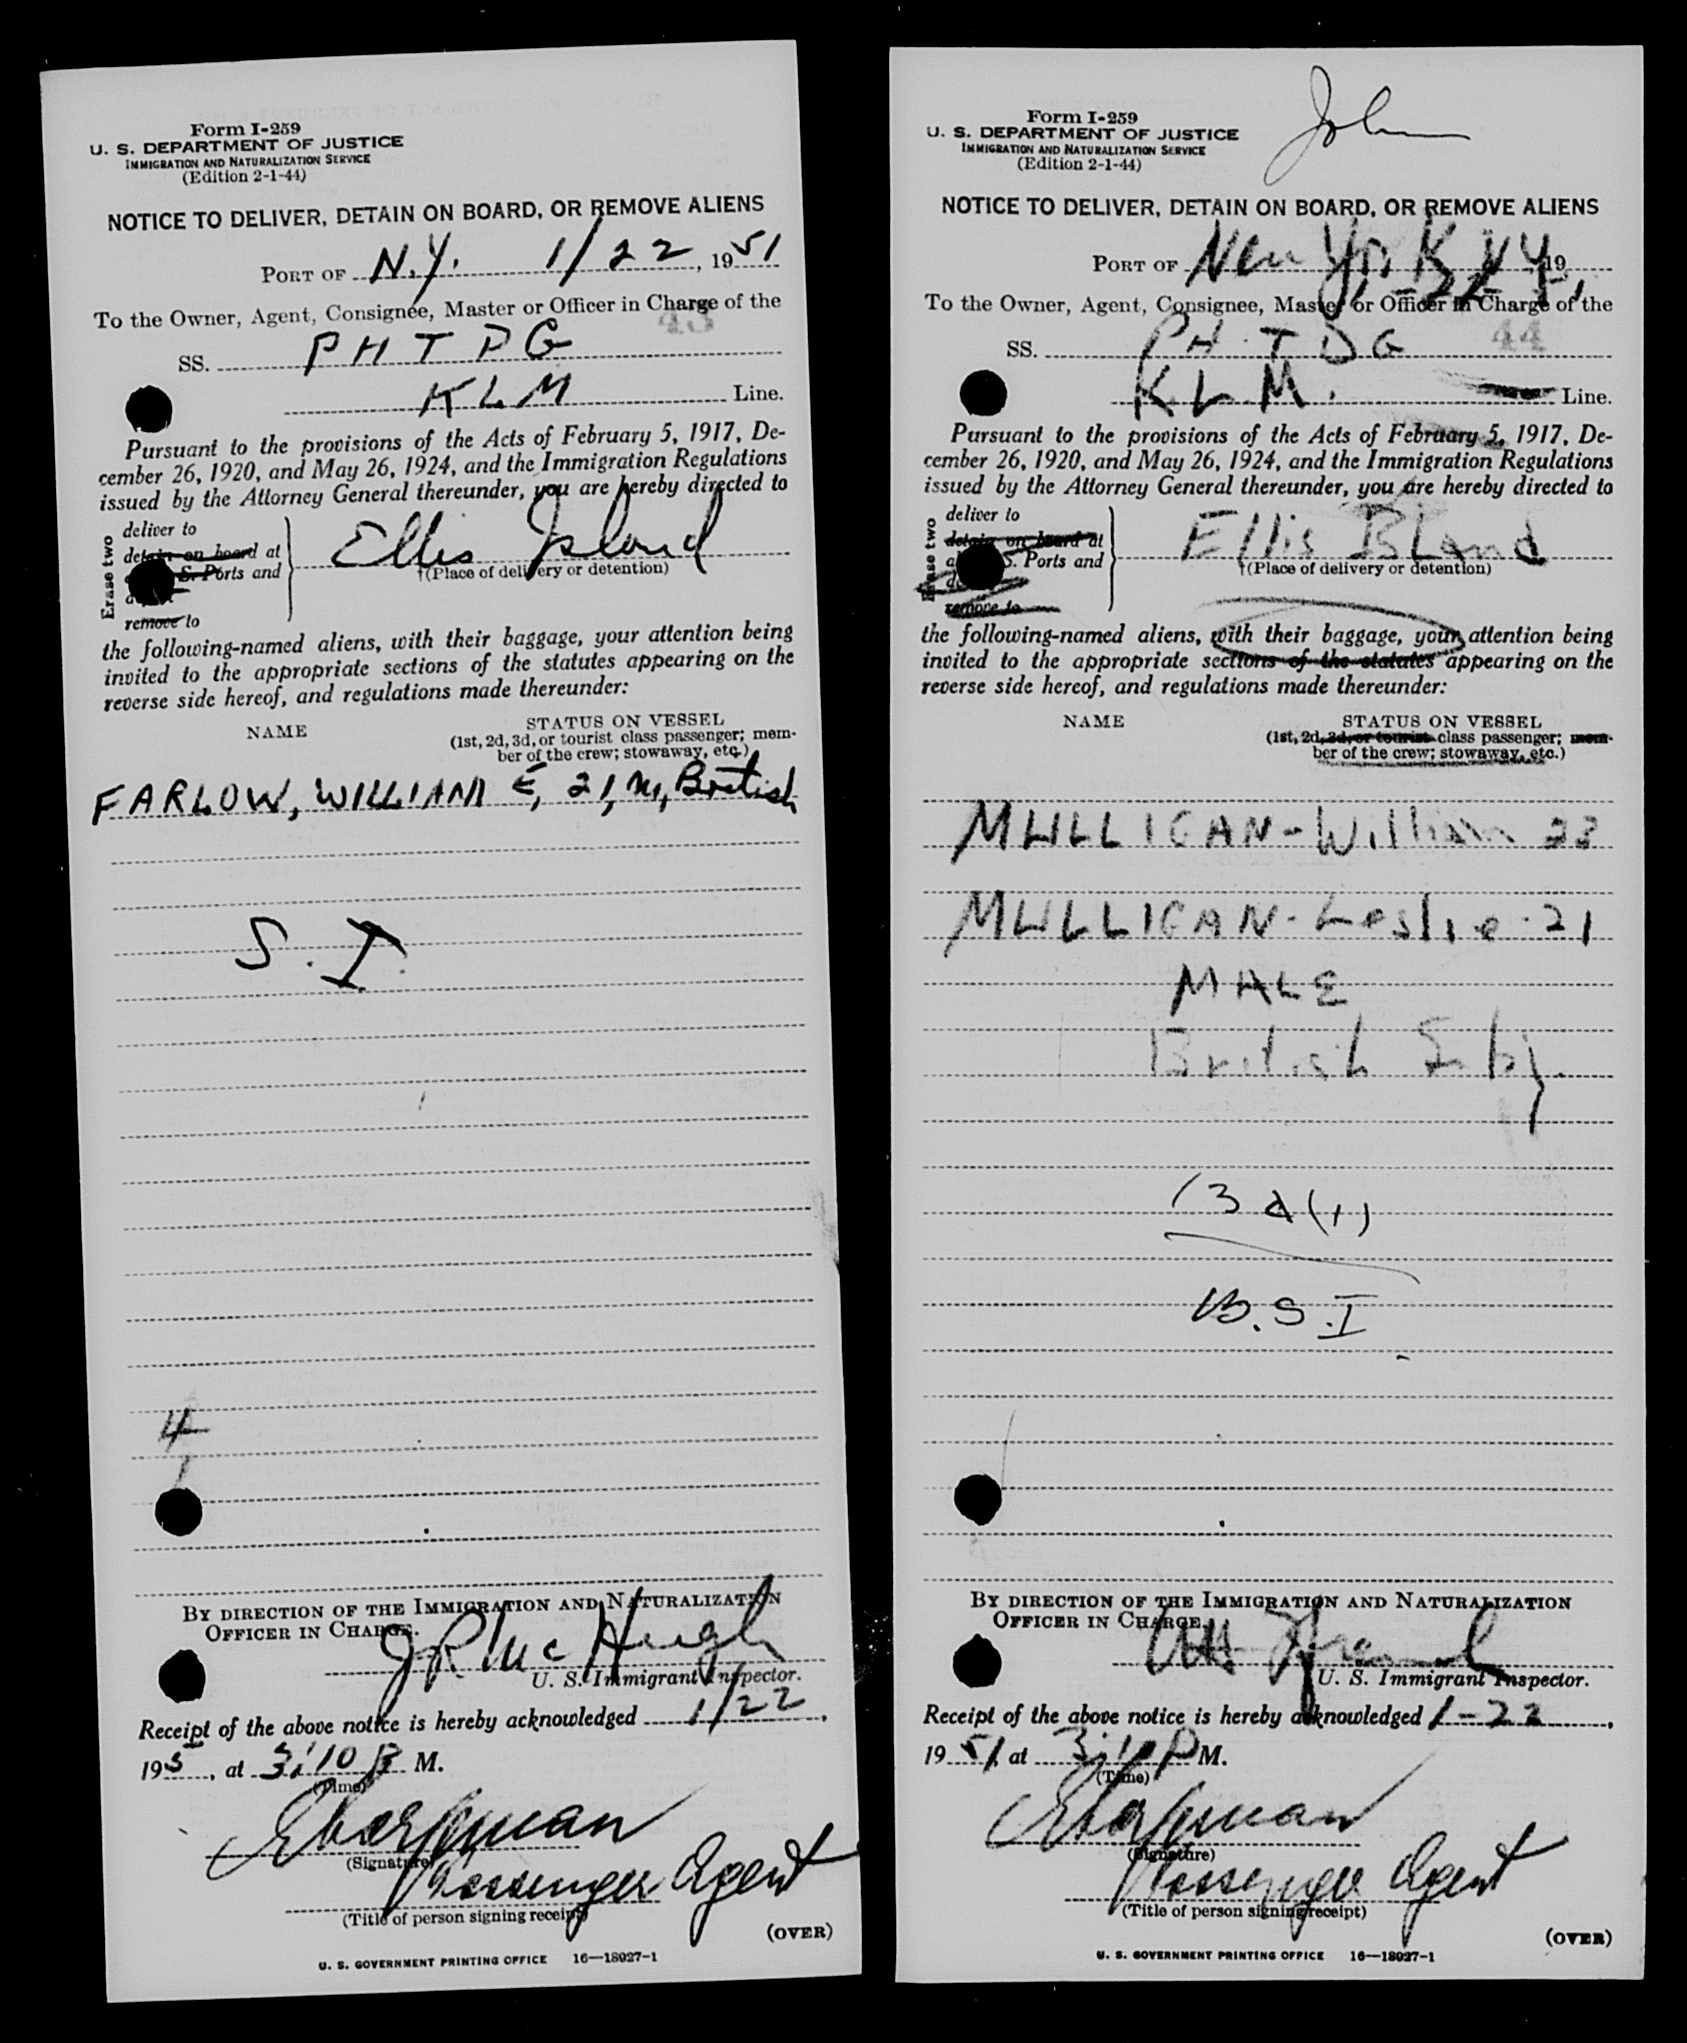 Form I-259
U. S. DEPARTMENT OF JUSTICE
IMMIGRATION AND NATURALIZATION SERVICE
(Edition 2-1-44)
NOTICE TO DELIVER, DETAIN ON BOARD, OR REMOVE ALIENS
PORT OF N.Y. 1/22, 1951
To the Owner, Agent, Consignee, Master or Officer in Charge of the
43
SS. PHTDG
KLM Line.
Pursuant to the provisions of the Acts of February 5, 1917, De-
cember 26, 1920, and May 26, 1924, and the Immigration Regulations
issued by the Attorney General thereunder, you are hereby directed to
Erase two
deliver to
detain on board at
S. Ports and
remove to
Ellis Island
†(Place of delivery or detention)
the following-named aliens, with their baggage, your attention being
invited to the appropriate sections of the statutes appearing on the
reverse side hereof, and regulations made thereunder:
NAME STATUS ON VESSEL
(1st, 2d, 3d, or tourist class passenger; mem-
ber of the crew; stowaway, etc.)
FARLOW, WILLIAM E, 21, M, British
S.I.
4
BY DIRECTION OF THE IMMIGRATION AND NATURALIZATION
OFFICER IN CHARGE.
J R McHugh
U. S. Immigrant Inspector.
Receipt of the above notice is hereby acknowledged 1/22,
195, at 3:10 P M.
(Time)
(Signature)
Passenger Agent
(Title of person signing receipt)
(OVER)
U. S. GOVERNMENT PRINTING OFFICE 16—18027-1
John
Form I-259
U. S. DEPARTMENT OF JUSTICE
IMMIGRATION AND NATURALIZATION SERVICE
(Edition 2-1-44)
NOTICE TO DELIVER, DETAIN ON BOARD, OR REMOVE ALIENS
PORT OF New York NY 19
1-22-51
To the Owner, Agent, Consignee, Master or Officer in Charge of the
44
SS. PH-TDG
KLM. Line.
Pursuant to the provisions of the Acts of February 5, 1917, De-
cember 26, 1920, and May 26, 1924, and the Immigration Regulations
issued by the Attorney General thereunder, you are hereby directed to
Erase two
deliver to
detain on board at
S. Ports and
remove to
Ellis Island
†(Place of delivery or detention)
the following-named aliens, with their baggage, your attention being
invited to the appropriate sections of the statutes appearing on the
reverse side hereof, and regulations made thereunder:
NAME STATUS ON VESSEL
(1st, 2d, 3d, or tourist class passenger; mem-
ber of the crew; stowaway, etc.)
MULLIGAN-William 23
MULLIGAN-Leslie-21
MALE
British Subj.
13 a (1)
B.S.I
BY DIRECTION OF THE IMMIGRATION AND NATURALIZATION
OFFICER IN CHARGE.
U. S. Immigrant Inspector.
Receipt of the above notice is hereby acknowledged 1-22,
1951, at 3:10 P M.
(Time)
(Signature)
Passenger Agent
(Title of person signing receipt)
(OVER)
U. S. GOVERNMENT PRINTING OFFICE 16—18027-1